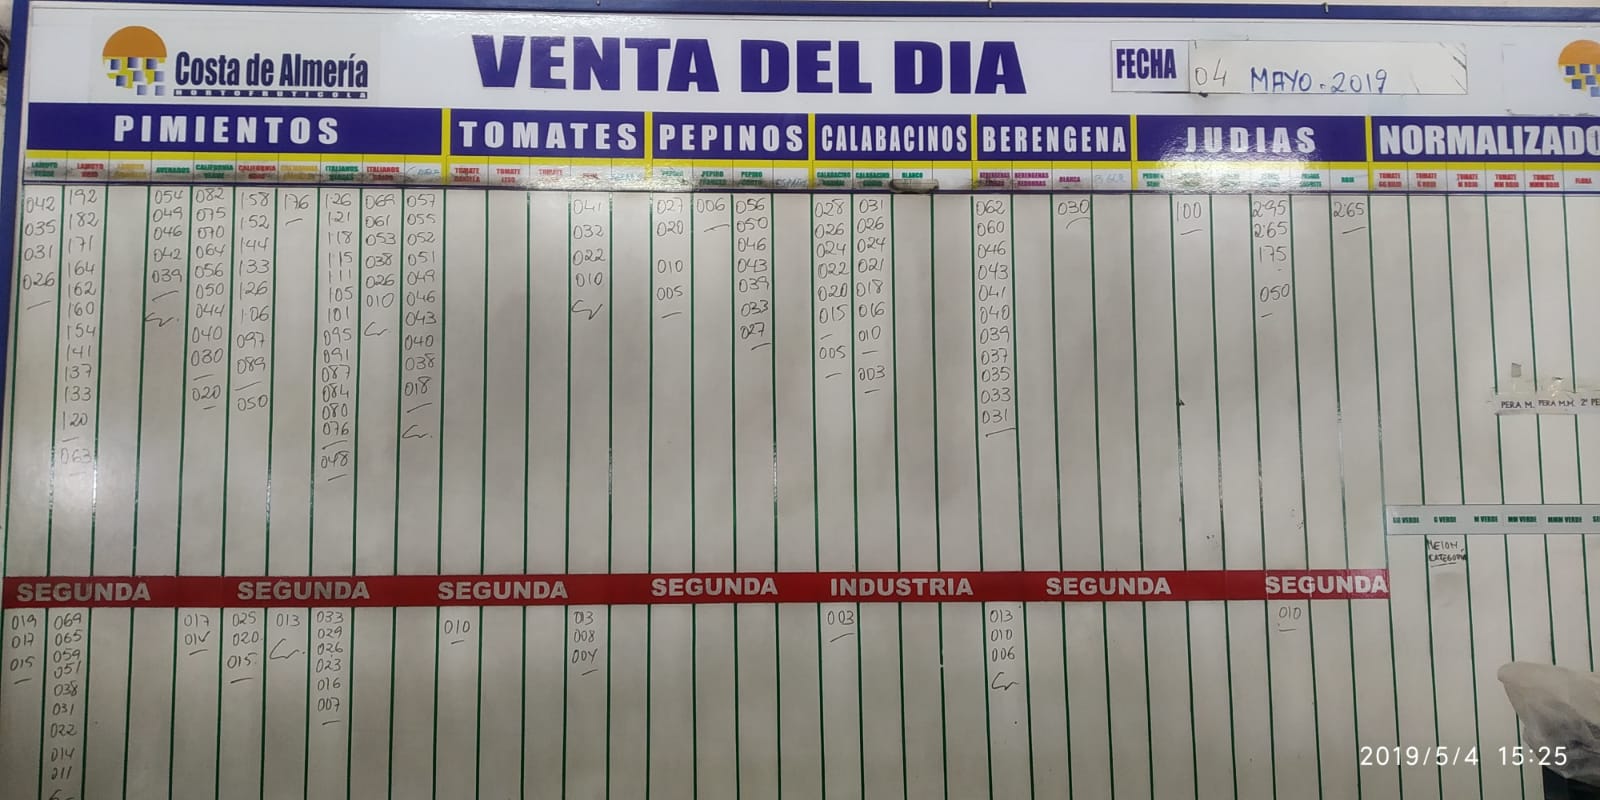 Costa de Almería
HORTOFRUTICOLA
VENTA DEL DIA
FECHA 04 MAYO-2019
PIMIENTOS TOMATES PEPINOS CALABACINOS BERENGENA JUDIAS NORMALIZADO
LAMUYO VERDE LAMUYO ROJO ASURADOS CALIFORNIA CALIFORNIA ITALIANOS ITALIANOS TOMATE TOMATE TOMATE PEPINO CALABACINO CALABACINO BLANCO BERENGENAS BERENGENAS BLANCA ROJA TOMATE GG ROJO TOMATE G ROJO TOMATE M ROJO TOMATE MM ROJO TOMATE MMM ROJO
042 035 031 026
192 182 171 164 162 160 154 141 137 133 120 063
054 049 046 042 039
082 075 070 064 056 050 044 040 030 020
158 152 144 133 126 106 097 089 050
176
126 121 118 115 111 105 101 095 091 087 084 080 076 048
069 061 053 038 026 010
057 055 052 051 049 046 043 040 038 018
041 032 022 010
027 020 010 005
006
056 050 046 043 039 033 027
028 026 024 022 020 015 005
031 026 024 021 018 016 010 003
062 060 046 043 041 040 039 037 035 033 031
030
100
295 265 175 050
265
PERA M. PERA M.M. 2ª PE
GG VERDE G VERDE M VERDE MM VERDE MMM VERDE
MELON CATEGORIA
SEGUNDA SEGUNDA SEGUNDA SEGUNDA INDUSTRIA SEGUNDA SEGUNDA
019 017 015
069 065 059 051 038 031 022 014 011
017 014
025 020 015
013
033 029 026 023 016 007
010
013 008 004
003
013 010 006
010
2019/5/4 15:25